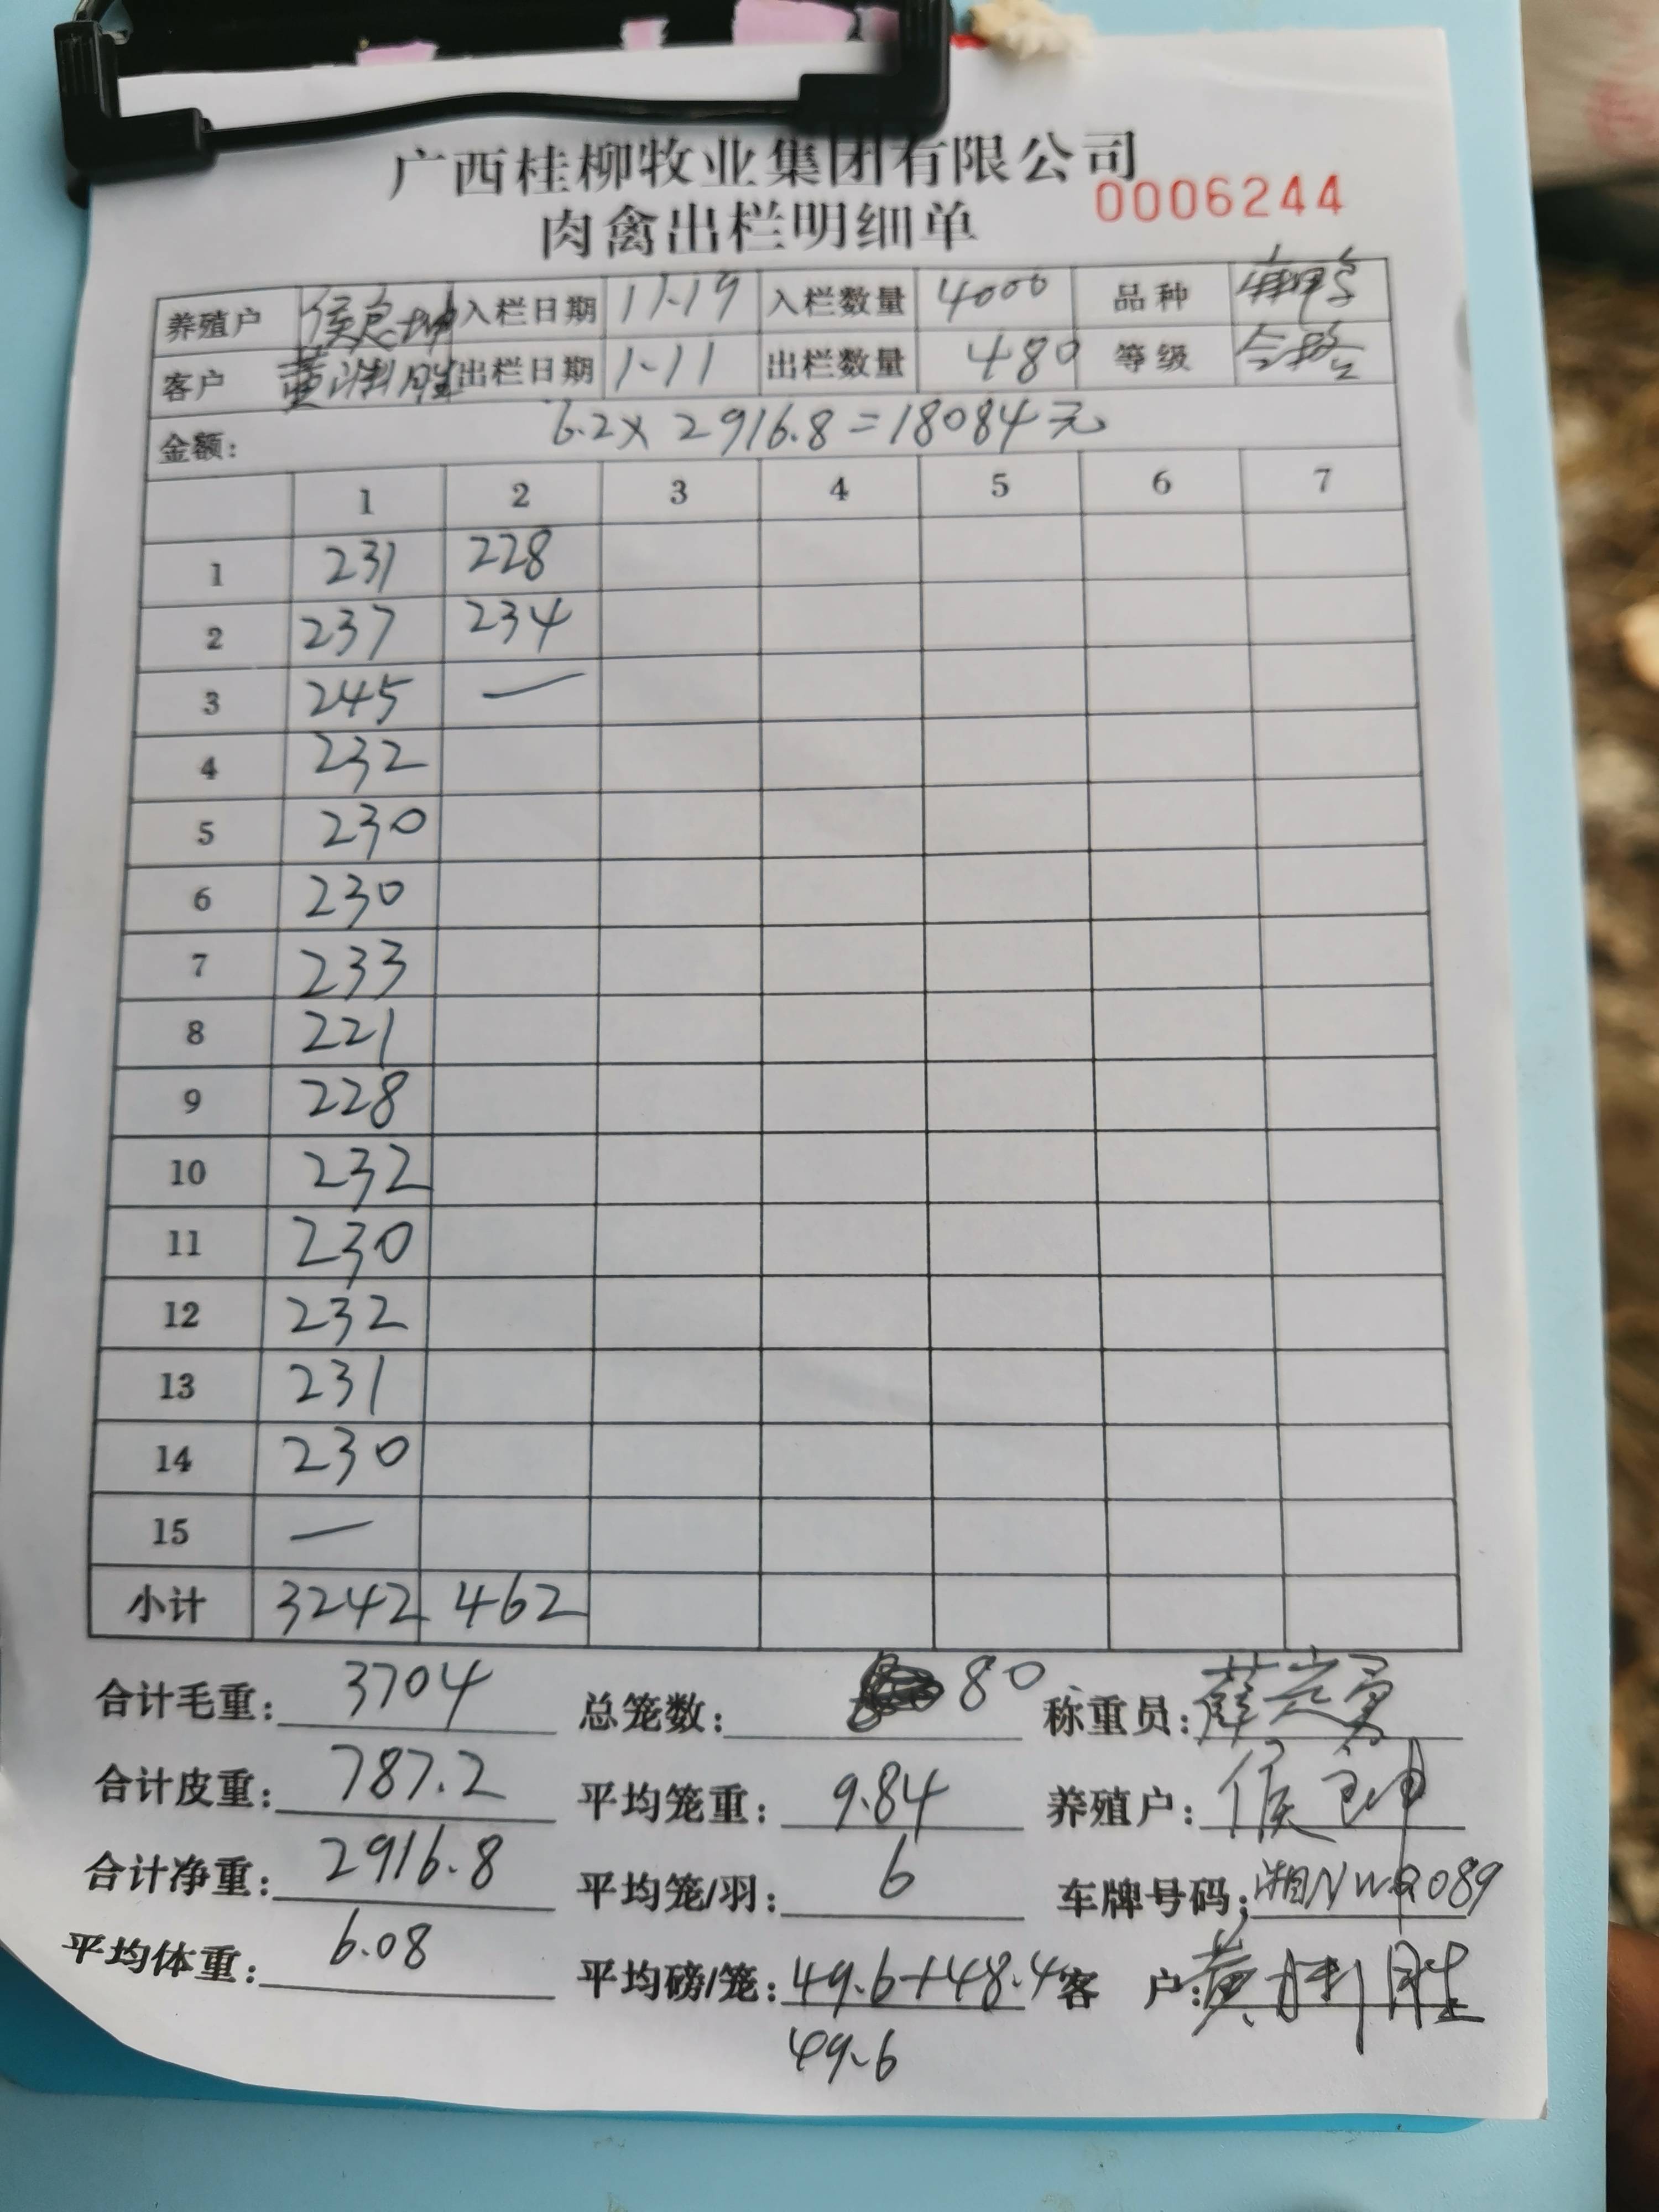 广西桂柳牧业集团有限公司
肉禽出栏明细单 0006244
养殖户 侯 坤 入栏日期 11-19 入栏数量 4000 品种
客户 黄 胜 出栏日期 1-11 出栏数量 480 等级
金额: 6.2×2916.8=18084元
1 2 3 4 5 6 7
1 231 228
2 237 234
3 245 —
4 232
5 230
6 230
7 233
8 221
9 228
10 232
11 230
12 232
13 231
14 230
15 —
小计 3242 462
合计毛重: 3704 总笼数: 80 称重员: 薛定勇
合计皮重: 787.2 平均笼重: 9.84 养殖户: 侯 坤
合计净重: 2916.8 平均笼/羽: 6 车牌号码: 湘NWQ089
平均体重: 6.08 平均磅/笼: 49.6+48.4 客 户: 黄 胜
49.6